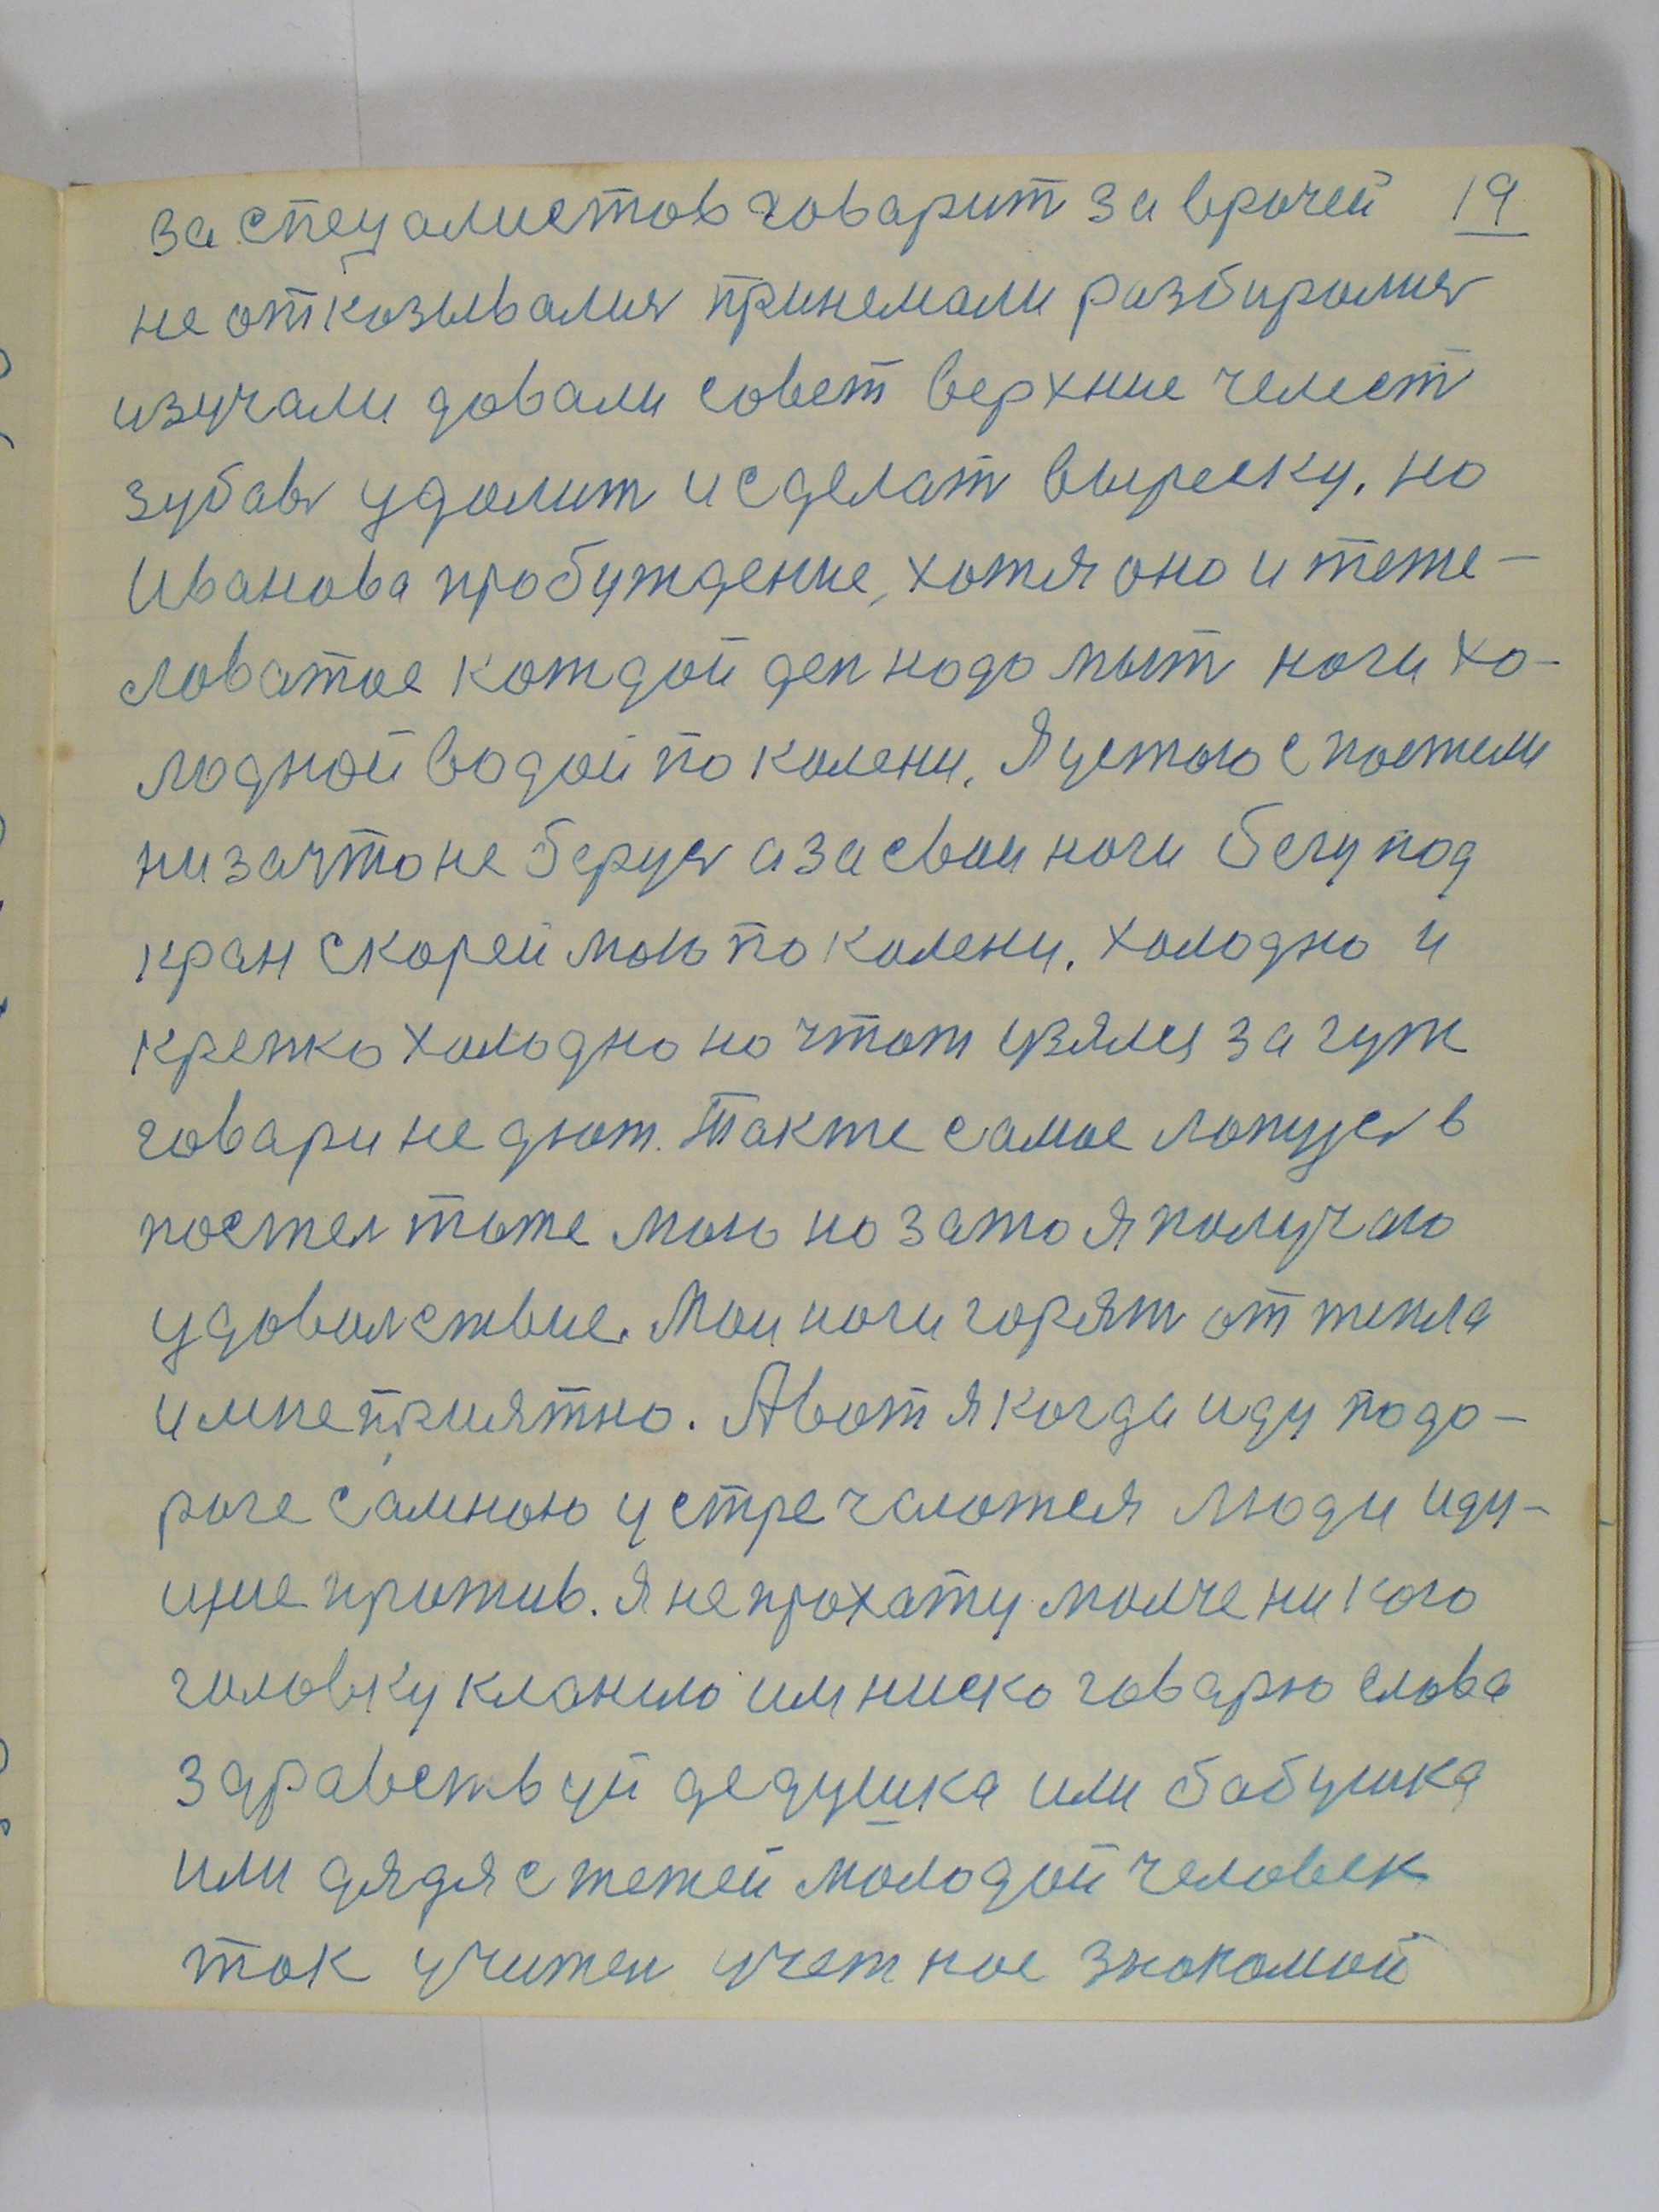 за спецалистов говарит за врачей 19
не отказывалися принемали разбиралися
изучали довали совет верхние челест
зубав удолит и сделат вырезку, но
Иванова пробуждение, хотя оно и теже-
ловатое каждой ден надо мыт ноги хо-
лодной водой по колени. Я устою с постели
низачто не беруся а за свои ноги бегу под
кран скорей мою по колени. холодно и
крепко холодно но чтот узялся за гуж
говари не дюж. Также самое ложуся в
постел тоже мою но зато я получаю
удоволствие. Мои ноги горят от тепла
и мне приятно. А вот я когда иду подо-
роге самною устречаются люди иду-
щие против. Я не прохажу молче никого
головку кланяю им ниско говарю слова
здравствуй дедушка или бабушка
или дядя с тетей молодой человек
так учител учетное знокомой